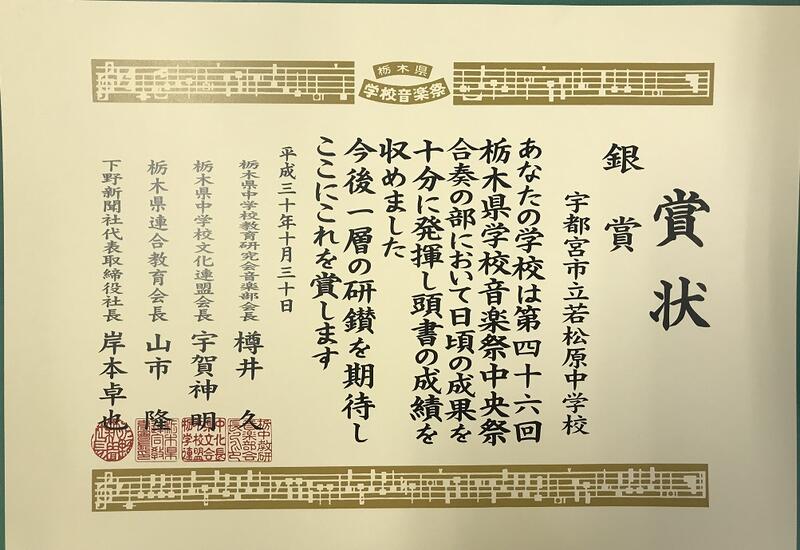 栃木県
学校音楽祭
賞状
銀賞
宇都宮市立若松原中学校
あなたの学校は第四十六回
栃木県学校音楽祭中央祭
合奏の部において日頃の成果を
十分に発揮し頭書の成績を
収めました
今後一層の研鑽を期待し
ここにこれを賞します
平成三十年十月三十日
栃木県中学校教育研究会音楽部会長 樽井久
栃木県中学校文化連盟会長 宇賀神明
栃木県連合教育会長 山市隆
下野新聞社代表取締役社長 岸本卓也